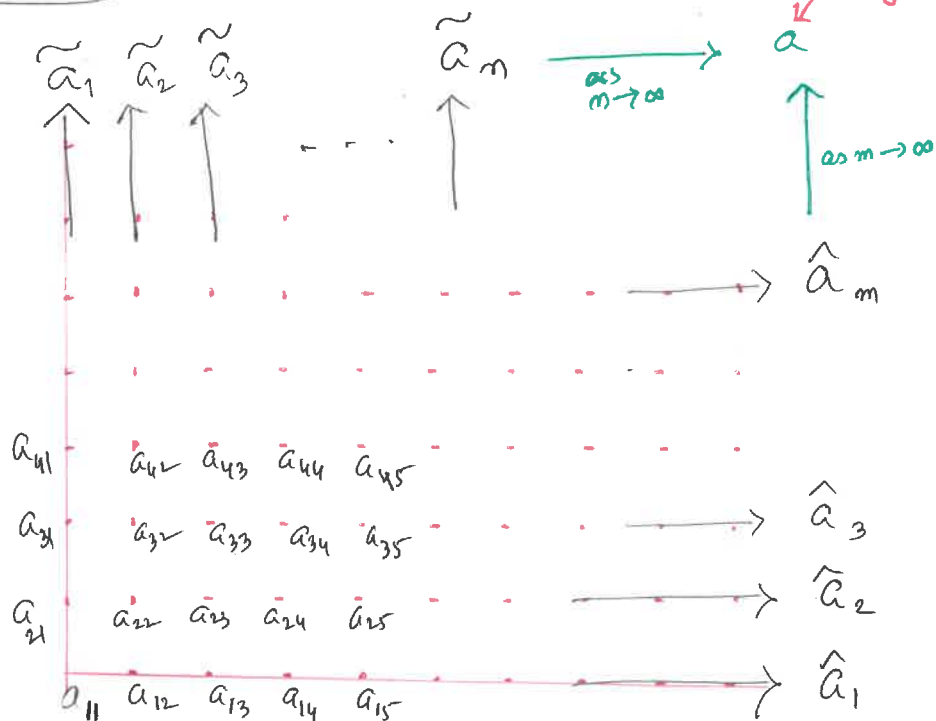 ã₁ ã₂ ã₃ - - . ãₙ as n→∞ a
as m→∞
âₘ
a₄₁ a₄₂ a₄₃ a₄₄ a₄₅
a₃₁ a₃₂ a₃₃ a₃₄ a₃₅ â₃
a₂₁ a₂₂ a₂₃ a₂₄ a₂₅ â₂
a₁₁ a₁₂ a₁₃ a₁₄ a₁₅ â₁